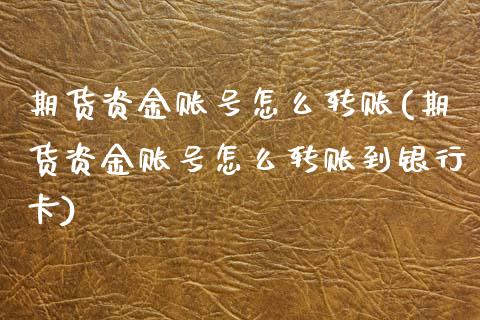 期货资金账号怎么转账(期
货资金账号怎么转账到银行
卡)